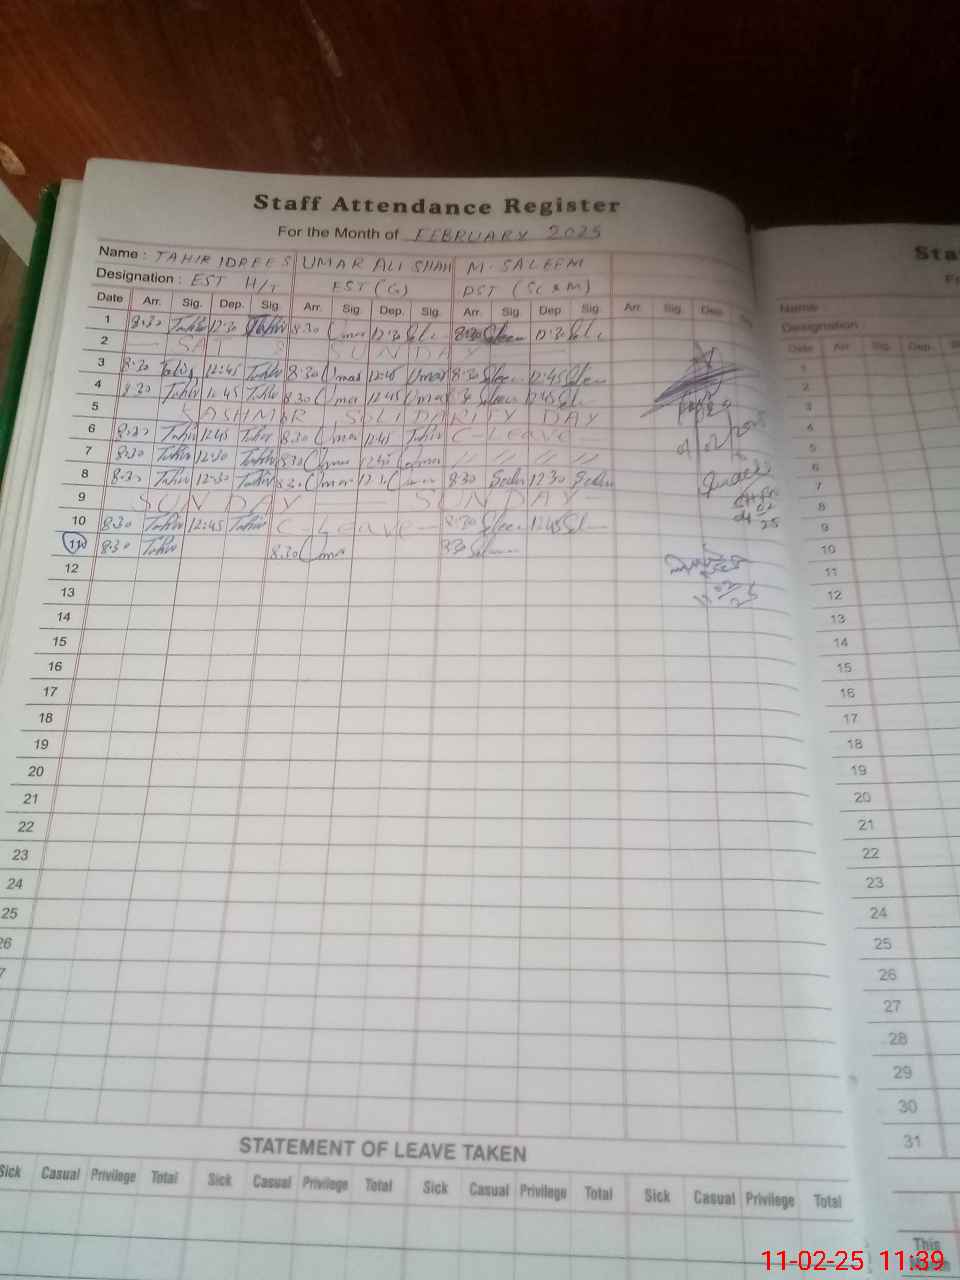 Staff Attendance Register
For the Month of FEBRUARY 2025
Name : TAHIR IDREES UMAR ALI SHAH M. SALEEM
Designation : EST H/T EST (G) PST (Sc & M)
Date Arr. Sig. Dep. Sig. Arr. Sig. Dep. Sig. Arr. Sig. Dep Sig Arr. Sig. Dep
1 8:30 Tahir 12:30 Tahir 8:30 Umar 12:30 8:30 Saleem 12:30
2 SUNDAY
3 8:30 Tahir 12:45 Tahir 8:30 Umar 12:45 Umar 8:30 Saleem 12:45 Saleem
4 8:30 Tahir 12:45 Tahir 8:30 Umar 12:45 Umar Saleem 12:45
5 KASHMIR SOLIDARITY DAY
6 8:30 Tahir 12:45 Tahir 8:30 Umar 12:45 C-Leave
7 8:30 Tahir 12:30 Tahir 8:30 Umar 12:30 Umar // // // //
8 8:30 Tahir 12:30 Tahir 8:30 Umar Umar 8:30 12:30
9 SUNDAY SUNDAY
10 8:30 Tahir 12:45 Tahir C-Leave 8:30 Saleem 12:45
11 8:30 Tahir 8:30 Umar 8:30
12
13
14
15
16
17
18
19
20
21
22
23
24
25
26
STATEMENT OF LEAVE TAKEN
Sick Casual Privilege Total Sick Casual Privilege Total Sick Casual Privilege Total Sick Casual Privilege Total
Name :
Designation :
Date Arr. Sig. Dep.
1
2
3
4
5
6
7
8
9
10
11
12
13
14
15
16
17
18
19
20
21
22
23
24
25
26
27
28
29
30
31
This
11-02-25 11:39